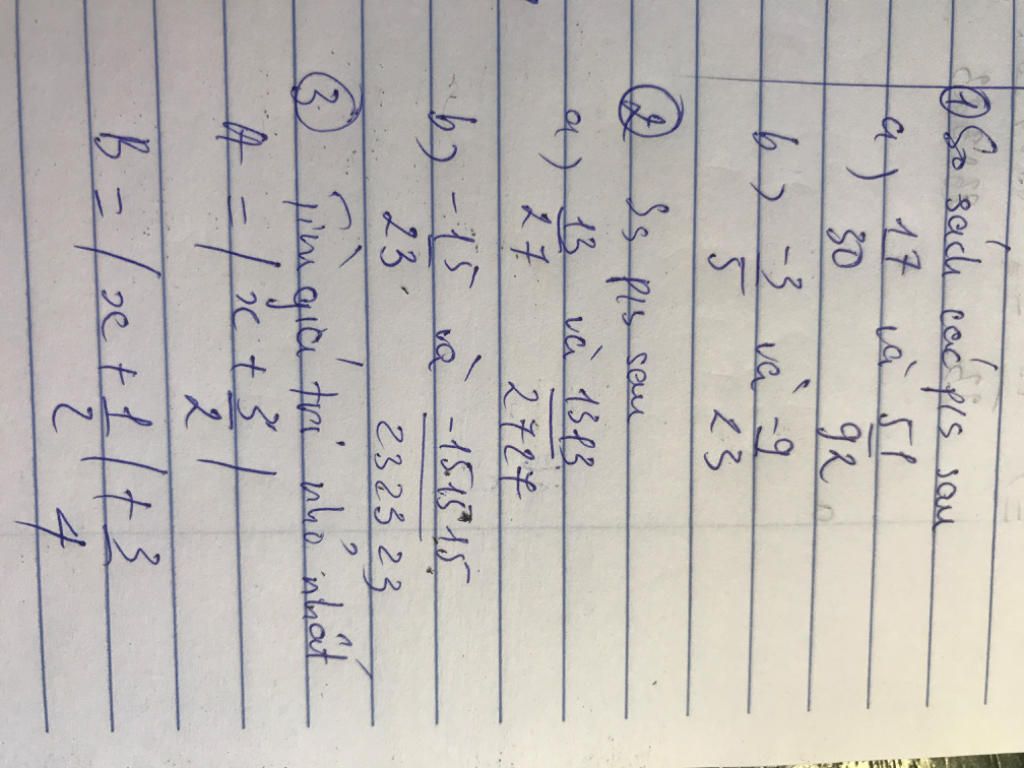 ① So sánh các pls sau
a) 17/30 và 51/92
b) -3/5 và -9/23
② Ss pls sau
a) 13/27 và 1313/2727
b) -15/23 và -151515/232323
③ Tìm giá trị nhỏ nhất
A = | x + 3/2 |
B = | x + 1/2 | + 3/4